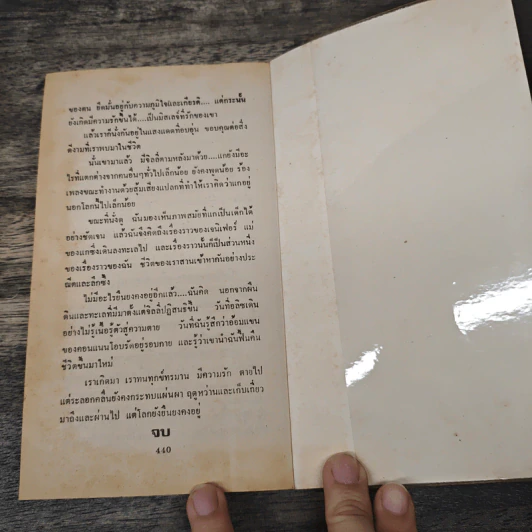 ของตน ยึดมั่นอยู่กับความภูมิใจและเกียรติ.... แต่กระนั้น
ยังเกิดมีความรักขึ้นได้....เป็นมิสเลย์ที่รักของเขา
แล้วเราก็นั่งกันอยู่ในแสงแดดที่อบอุ่น ขอบคุณต่อสิ่ง
ดีงามที่เราพบมาในชีวิต
นั่นเขามาแล้ว มีจิลลี่ตามหลังมาด้วย....แกยังมีอะ
ไรที่แตกต่างจากคนอื่นๆทั่วไปเล็กน้อย ยังคงพูดน้อย ร้อง
เพลงขณะทำงานด้วยสุ้มเสียงแปลกที่ทำให้เราคิดว่าแกอยู่
นอกโลกนี้ไปเล็กน้อย
ขณะที่นั่งดู ฉันมองเห็นภาพสมัยที่แกเป็นเด็กได้
อย่างชัดเจน แล้วฉันจึงคิดถึงเรื่องราวของเจนิเฟอร์ แม่
ของแกซึ่งเดินลงทะเลไป และเรื่องราวนั้นก็เป็นส่วนหนึ่ง
ของเรื่องราวของฉัน ชีวิตของเราสานเข้าหากันอย่างประ
ณีตและลึกซึ้ง
ไม่มีอะไรยืนยงคงอยู่อีกแล้ว....ฉันคิด นอกจากผืน
ดินและทะเลที่มีมาตั้งแต่จิลลี่ปฏิสนธิขึ้น วันที่อลิซเดิน
อย่างไม่รู้เนื้อรู้ตัวสู่ความตาย วันที่ฉันรู้สึกว่าอ้อมแขน
ของคอนแนนโอบรัดอยู่รอบกาย และรู้ว่าเขานำฉันฟื้นคืน
ชีวิตขึ้นมาใหม่
เราเกิดมา เราทนทุกข์ทรมาน มีความรัก ตายไป
แต่ระลอกคลื่นยังคงกระทบแผ่นผา ฤดูหว่านและเก็บเกี่ยว
มาถึงและผ่านไป แต่โลกยังยืนยงคงอยู่
จบ
440